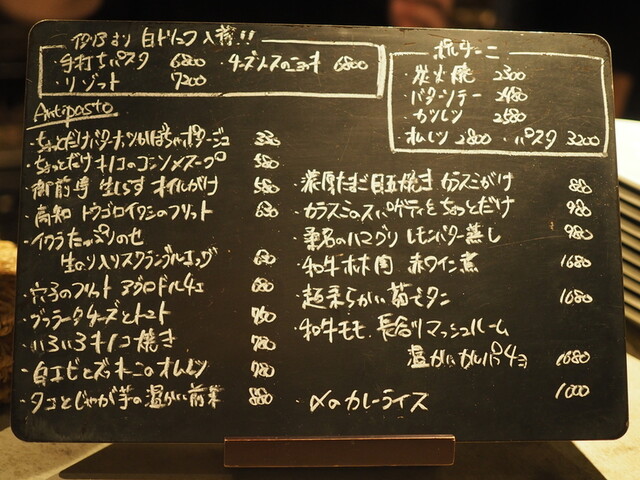 伊りより 白トリュフ入荷!!
・手打ちパスタ 6800 ・チーズソースのニョッキ 6800
・リゾット 7200
ポルチーニ
・炭火焼 2300
・バターソテー 2480
・カツレツ 2580
・オムレツ 2800 ・パスタ 3200
Antipasto
・ちょっとだけバターナッツかぼちゃポタージュ 330
・ちょっとだけキノコのコンソメスープ 580
・御前崎 生しらす オイルがけ 580
・高知 トウゴロイワシのフリット 630
・イクラたっぷりのせ
生のり入りスクランブルエッグ 680
・穴子のフリット アグロドルチェ 680
・ブッラータチーズとトマト 780
・いろいろキノコ焼き 780
・白エビとズッキーニのオムレツ 780
・タコとじゃが芋の温かい前菜 880
・濃厚たまご目玉焼き カラスミがけ 880
・カラスミのスパゲティをちょっとだけ 980
・桑名のハマグリ レモンバター蒸し 980
・和牛ホホ肉 赤ワイン煮 1680
・超柔らかい茹でタン 1680
・和牛モモ、長谷川マッシュルーム
温かいカルパッチョ 1680
・〆のカレーライス 1000